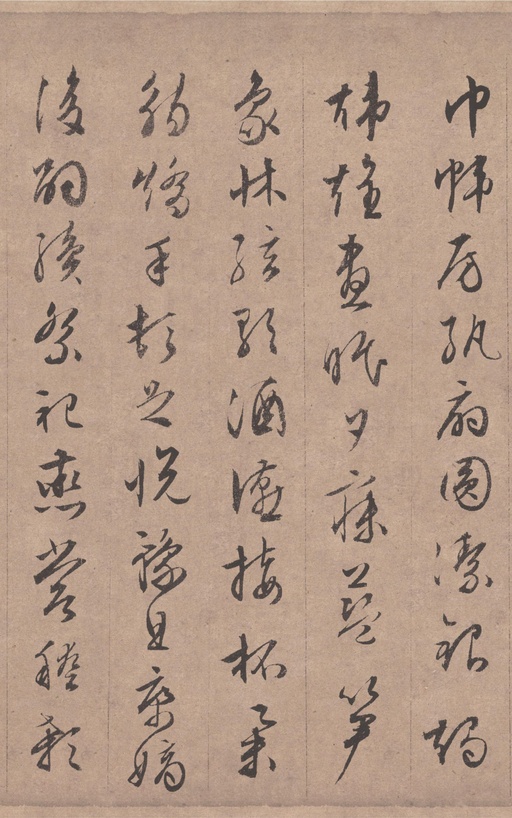 巾幃房紈扇圓潔銀燭
煒煌晝眠夕寐藍笋
象牀絃歌酒讌接杯舉
觴矯手頓足悅豫且康嫡
後嗣續祭祀烝嘗稽顙